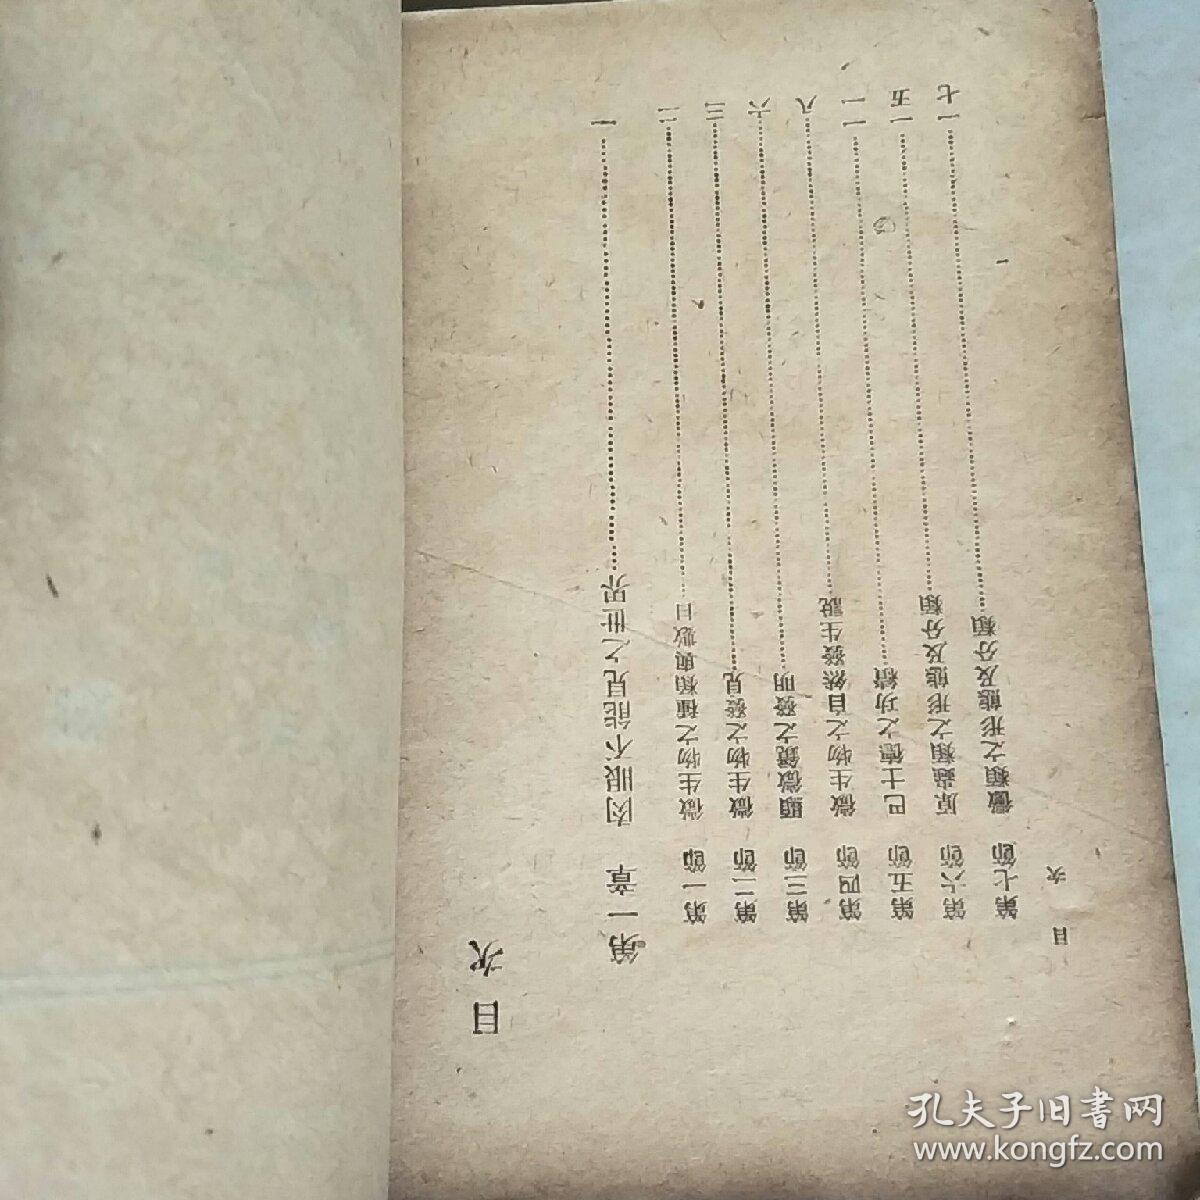 目次
第一章　肉眼不能見之世界……一
第一節　微生物之種類與數目……二
第二節　微生物之發見……三
第三節　顯微鏡之發明……六
第四節　微生物之自然發生說……八
第五節　巴士德之功績……一一
第六節　原蟲類之形態及分類……一五
第七節　黴類之形態及分類……一七
目　次
一
孔夫子旧書网
www.kongfz.com